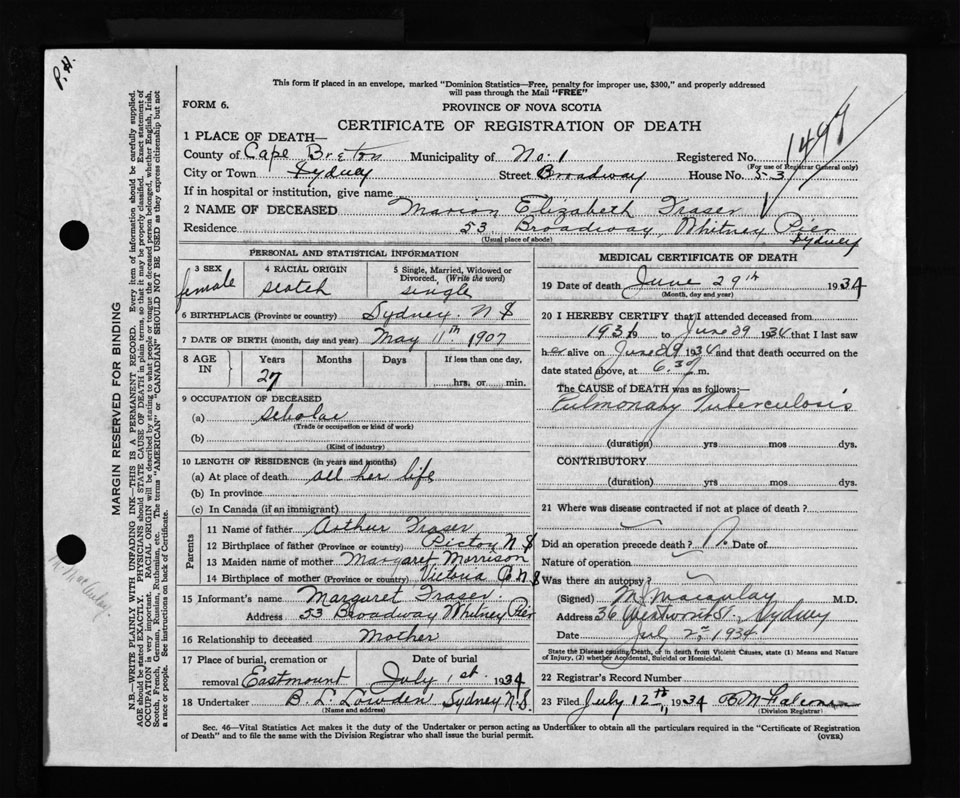 P.H.
This form if placed in an envelope, marked "Dominion Statistics—Free, penalty for improper use, $300," and properly addressed
will pass through the Mail "FREE"
FORM 6.
PROVINCE OF NOVA SCOTIA
CERTIFICATE OF REGISTRATION OF DEATH
1497
1 PLACE OF DEATH—
County of Cape Breton Municipality of No. 1 Registered No.
(For use of Registrar General only)
City or Town Sydney Street Broadway House No. 53
If in hospital or institution, give name
2 NAME OF DECEASED Marion Elizabeth Fraser
Residence 53 Broadway, Whitney Pier Sydney
(Usual place of abode)
PERSONAL AND STATISTICAL INFORMATION
3 SEX female
4 RACIAL ORIGIN scotch
5 Single, Married, Widowed or Divorced. (Write the word) single
6 BIRTHPLACE (Province or country) Sydney. N S
7 DATE OF BIRTH (month, day and year) May 11th 1907
8 AGE IN Years 27 Months Days If less than one day, hrs. or min.
9 OCCUPATION OF DECEASED
(a) Scholar
(Trade or occupation or kind of work)
(b)
(Kind of industry)
10 LENGTH OF RESIDENCE (in years and months)
(a) At place of death all her life
(b) In province
(c) In Canada (if an immigrant)
Parents
11 Name of father Arthur Fraser
12 Birthplace of father (Province or country) Pictou N S
13 Maiden name of mother Margaret Morrison
14 Birthplace of mother (Province or country) Victoria Co N S
15 Informant's name Margaret Fraser
Address 53 Broadway Whitney Pier
16 Relationship to deceased Mother
17 Place of burial, cremation or removal Eastmount Date of burial July 1st 1934
18 Undertaker B. L. Lowden Sydney N.S.
(Name and address)
MEDICAL CERTIFICATE OF DEATH
19 Date of death June 29th 1934
(Month, day and year)
20 I HEREBY CERTIFY that I attended deceased from
1931 to June 29 1934 that I last saw
her alive on June 29 1934 and that death occurred on the
date stated above, at 6.30 m.
The CAUSE OF DEATH was as follows:—
Pulmonary Tuberculosis
(duration) yrs mos dys.
CONTRIBUTORY
(duration) yrs mos dys.
21 Where was disease contracted if not at place of death?
Did an operation precede death? Date of
Nature of operation
Was there an autopsy?
(Signed) M. Macaulay M.D.
Address 36 St., Sydney
Date July 2nd 1934
State the Disease causing Death, or in death from Violent Causes, state (1) Means and
Nature of Injury, (2) whether Accidental, Suicidal or Homicidal.
22 Registrar's Record Number
23 Filed July 12th, 1934
(Division Registrar)
Sec. 46—Vital Statistics Act makes it the duty of the Undertaker or person acting as Undertaker to obtain all the particulars required in the "Certificate of Registration
of Death" and to file the same with the Division Registrar who shall issue the burial permit.
(OVER)
MARGIN RESERVED FOR BINDING
N.B.—WRITE PLAINLY WITH UNFADING INK—THIS IS A PERMANENT RECORD. Every item of information should be carefully supplied.
AGE should be stated EXACTLY. PHYSICIANS should STATE CAUSE OF DEATH in plain terms, so that it may be properly classified. Exact statement of
OCCUPATION is very important. RACIAL ORIGIN will be described by stating to what people or tongue the deceased person belonged, whether English, Irish,
Scotch, French, German, Russian, Ruthenian, etc. The terms "AMERICAN" or "CANADIAN" SHOULD NOT BE USED as they express citizenship but not
a race or people. See instructions on back of Certificate.